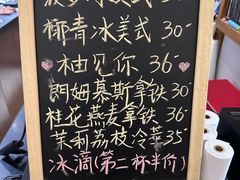 椰青冰美式 30
柚见你 36
朗姆慕斯拿铁 36
桂花燕麦拿铁 36
茉莉荔枝冷萃 35
冰滴(第二杯半价)